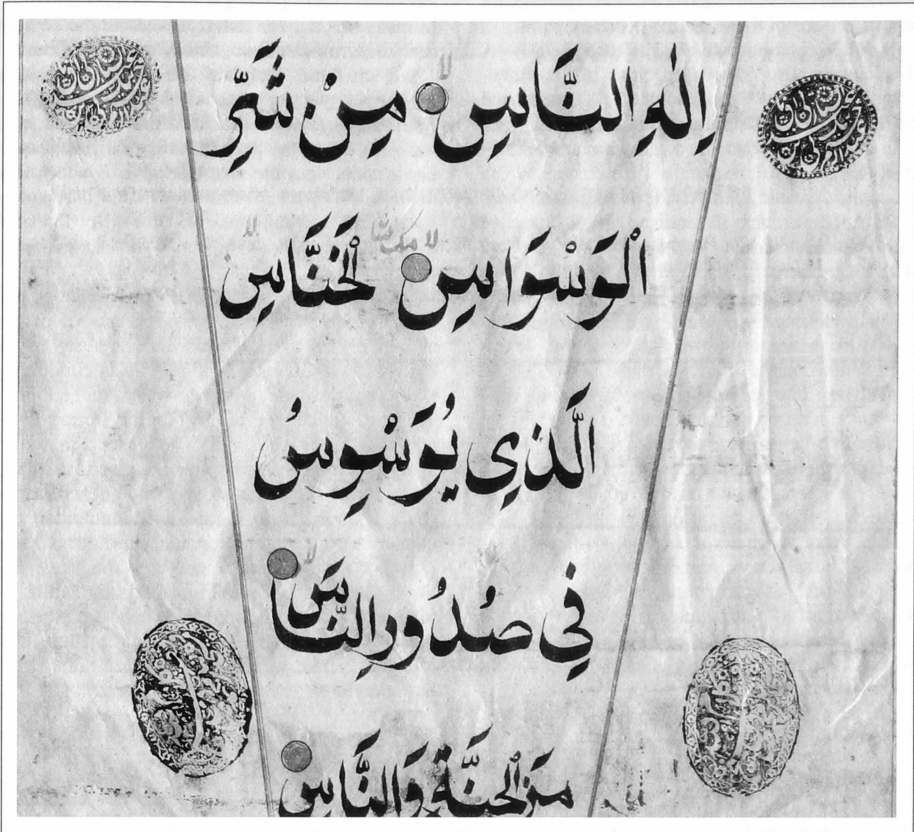 اِلٰهِ النَّاسِ لا مِنْ شَرِّ
الْوَسْوَاسِ لا الْخَنَّاسِ لا
الَّذِي يُوَسْوِسُ
فِي صُدُورِ النَّاسِ لا
مِنَ الْجِنَّةِ وَالنَّاسِ